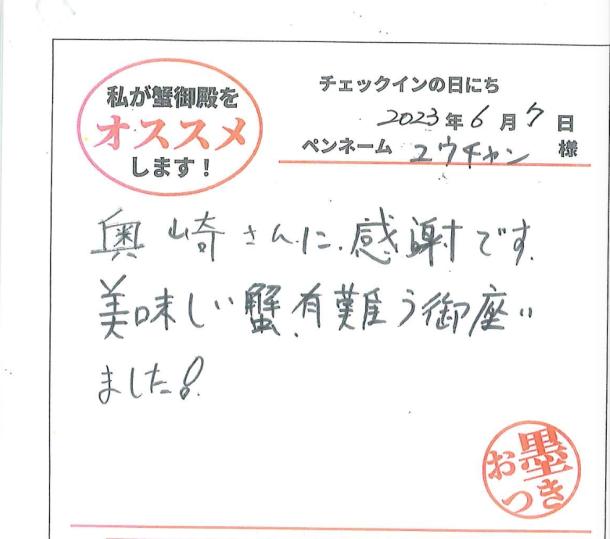 私が蟹御殿を
オススメ
します！
チェックインの日にち
2023年6月7日
ペンネーム ユウチャン 様
奥崎さんに感謝です。
美味しい蟹、有難う御座い
ました！
お墨
つき